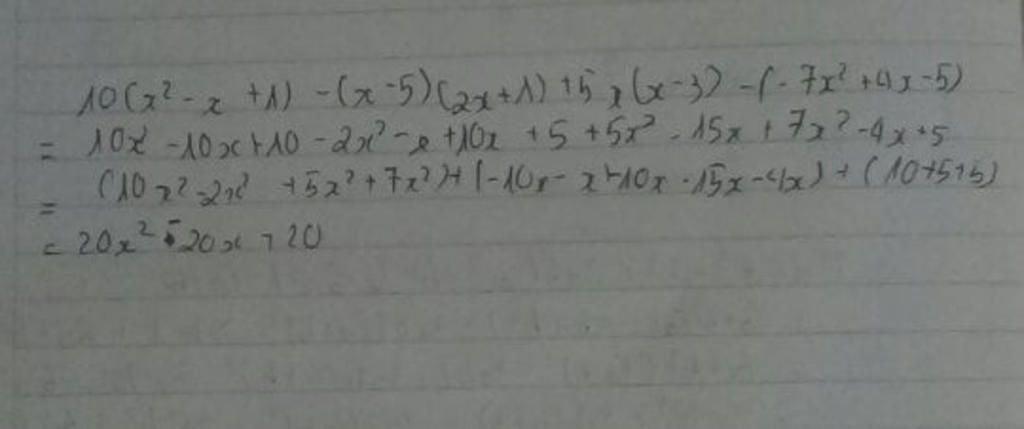 10(x² - x + 1) - (x - 5)(2x + 1) + 5x(x - 3) - (-7x² + 4x - 5)
= 10x² - 10x + 10 - 2x² - x + 10x + 5 + 5x² - 15x + 7x² - 4x + 5
= (10x² - 2x² + 5x² + 7x²) + (-10x - x + 10x - 15x - 4x) + (10 + 5 + 5)
= 20x² - 20x + 20